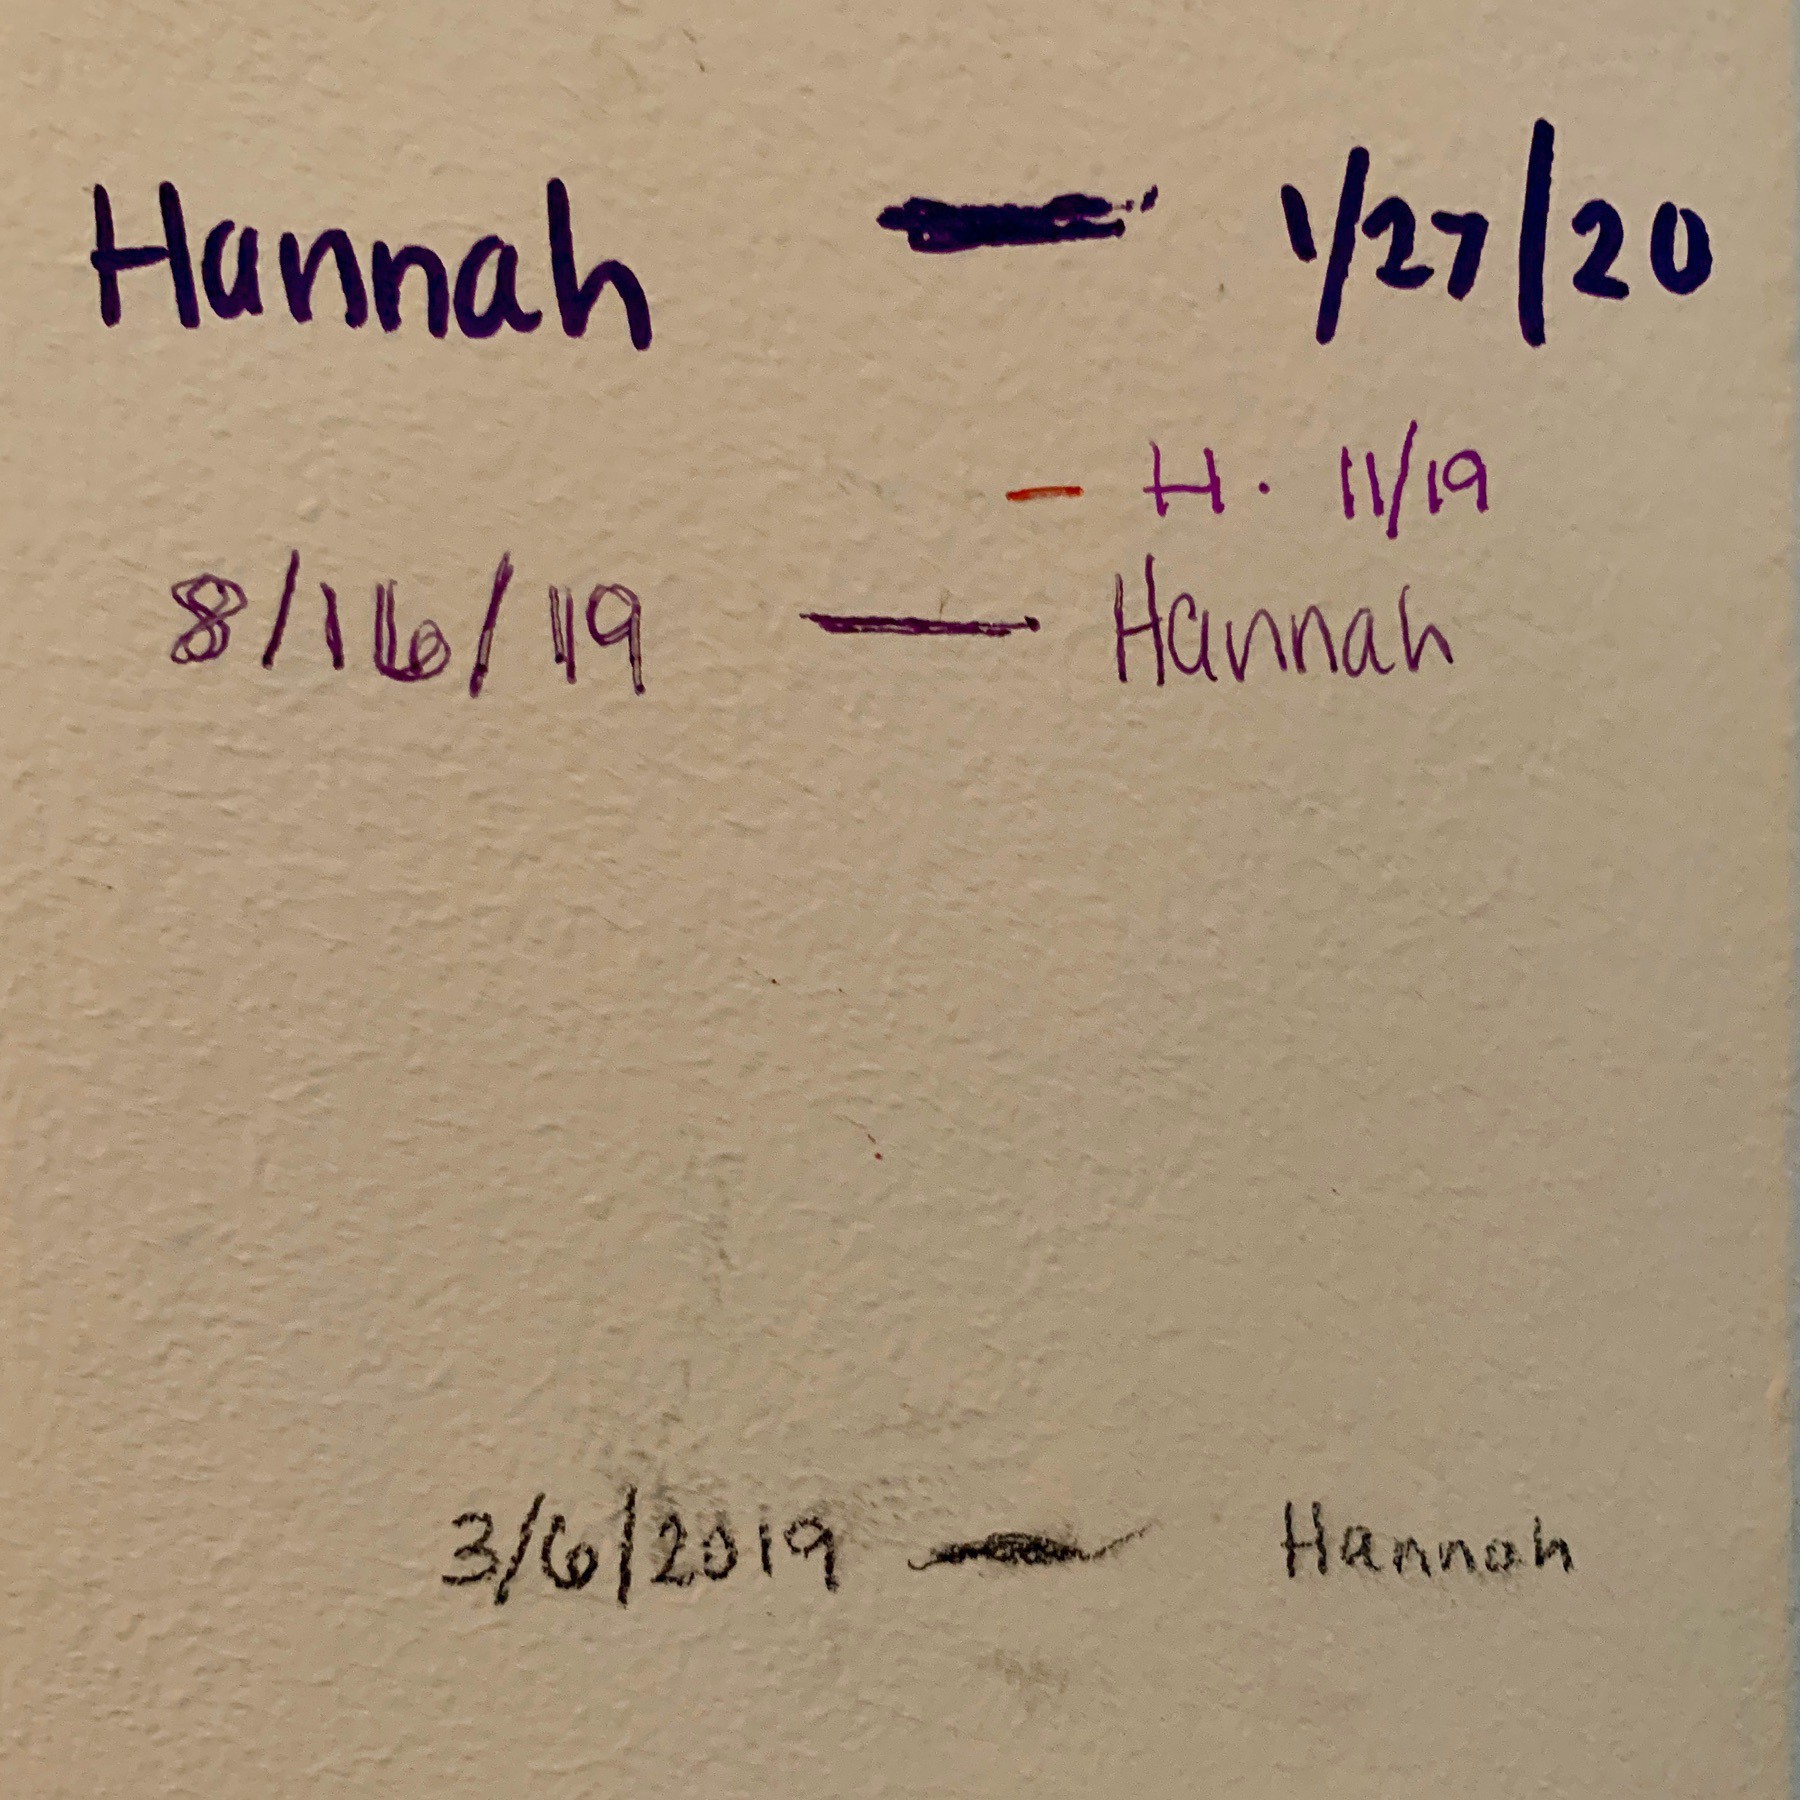 Hannah — 1/27/20
— H. 11/19
8/16/19 — Hannah
3/6/2019 — Hannah